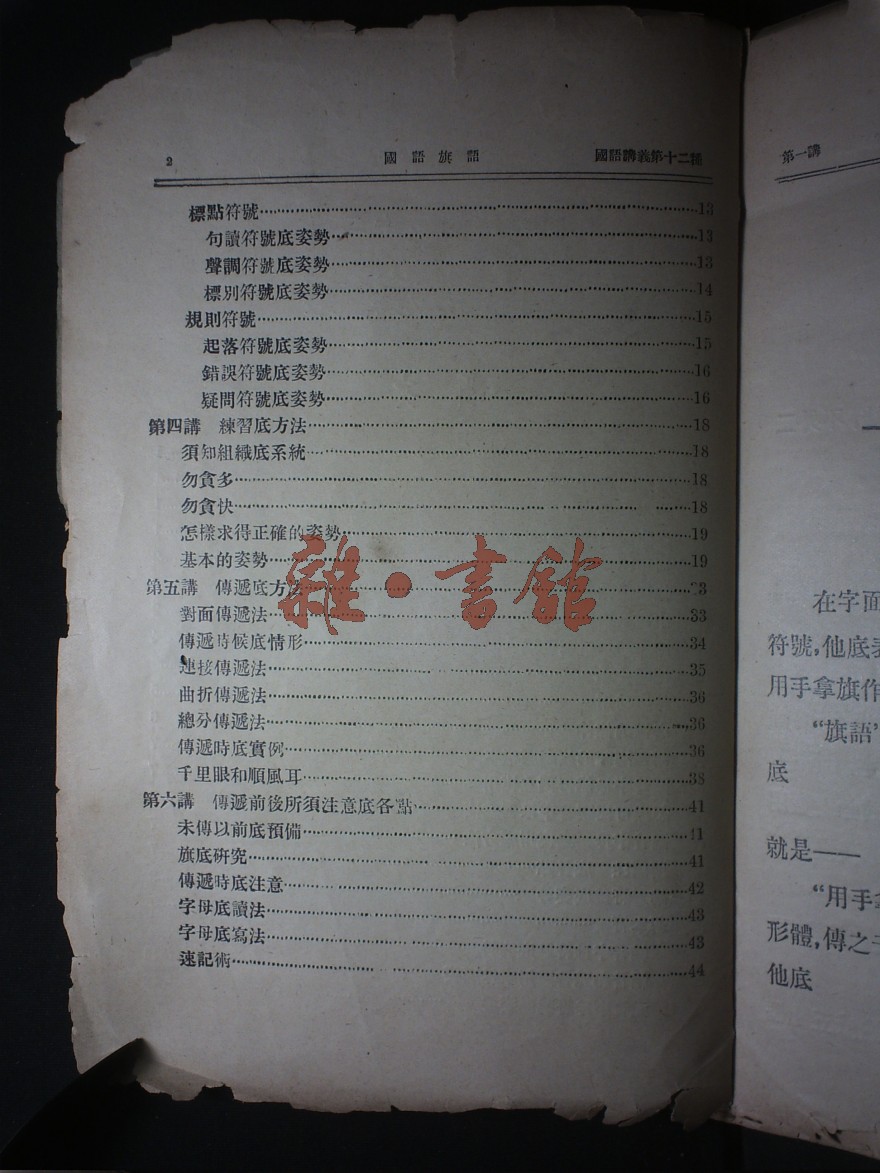 2 國語旗語 國語講義第十二種
標點符號 13
句讀符號底姿勢 13
聲調符號底姿勢 13
標別符號底姿勢 14
規則符號 15
起落符號底姿勢 15
錯誤符號底姿勢 16
疑問符號底姿勢 16
第四講 練習底方法 18
須知組織底系統 18
勿貪多 18
勿貪快 18
怎樣求得正確的姿勢 19
基本的姿勢 19
第五講 傳遞底方法
對面傳遞法 33
傳遞時候底情形 34
連接傳遞法 35
曲折傳遞法 36
總分傳遞法 36
傳遞時底實例 36
千里眼和順風耳 38
第六講 傳遞前後所須注意底各點 41
未傳以前底預備 41
旗底研究 41
傳遞時底注意 42
字母底讀法 43
字母底寫法 43
速記術 44
雜·書館
第一講
在字面
符號,他底表
用手拿旗作
“旗語”
底
就是——
“用手拿
形體,傳之于
他底